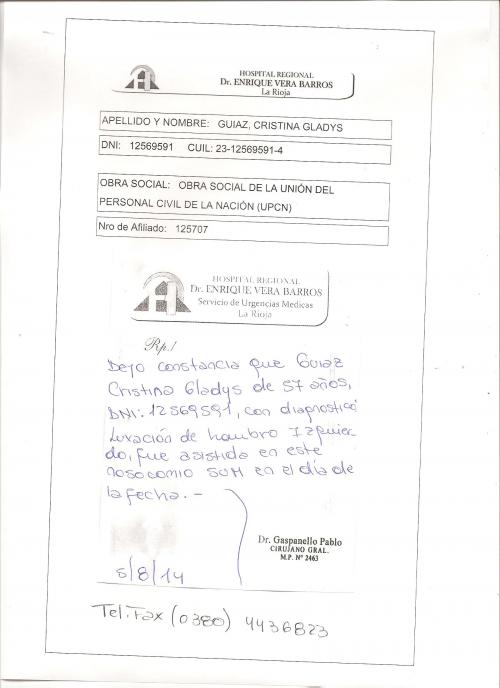 HOSPITAL REGIONAL
Dr. ENRIQUE VERA BARROS
La Rioja
APELLIDO Y NOMBRE: GUIAZ, CRISTINA GLADYS
DNI: 12569591 CUIL: 23-12569591-4
OBRA SOCIAL: OBRA SOCIAL DE LA UNIÓN DEL
PERSONAL CIVIL DE LA NACIÓN (UPCN)
Nro de Afiliado: 125707
HOSPITAL REGIONAL
Dr. ENRIQUE VERA BARROS
Servicio de Urgencias Medicas
La Rioja
Rp./
Dejo constancia que Guiaz
Cristina Gladys de 57 años,
DNI: 12569591, con diagnostico
Luxación de hombro Izquier
do, fue asistida en este
nosocomio SUM en el día de
la fecha. -
Dr. Gaspanello Pablo
CIRUJANO GRAL.
M.P. Nº 2463
5/8/14
Tel.Fax (0380) 4436823